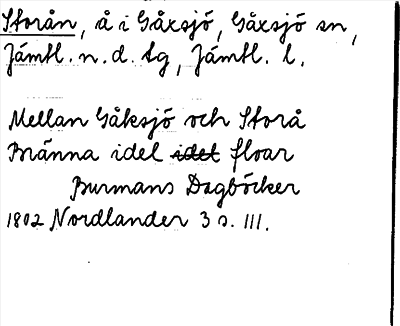 Storån, å i Gåxsjö, Gåxsjö sn,
Jämtl. n. d. tg, Jämtl. l.
Mellan Gåksjö och Storå
Bränna idel idet floar
Burmans Dagböcker
1802 Nordlander 3 s. 111.